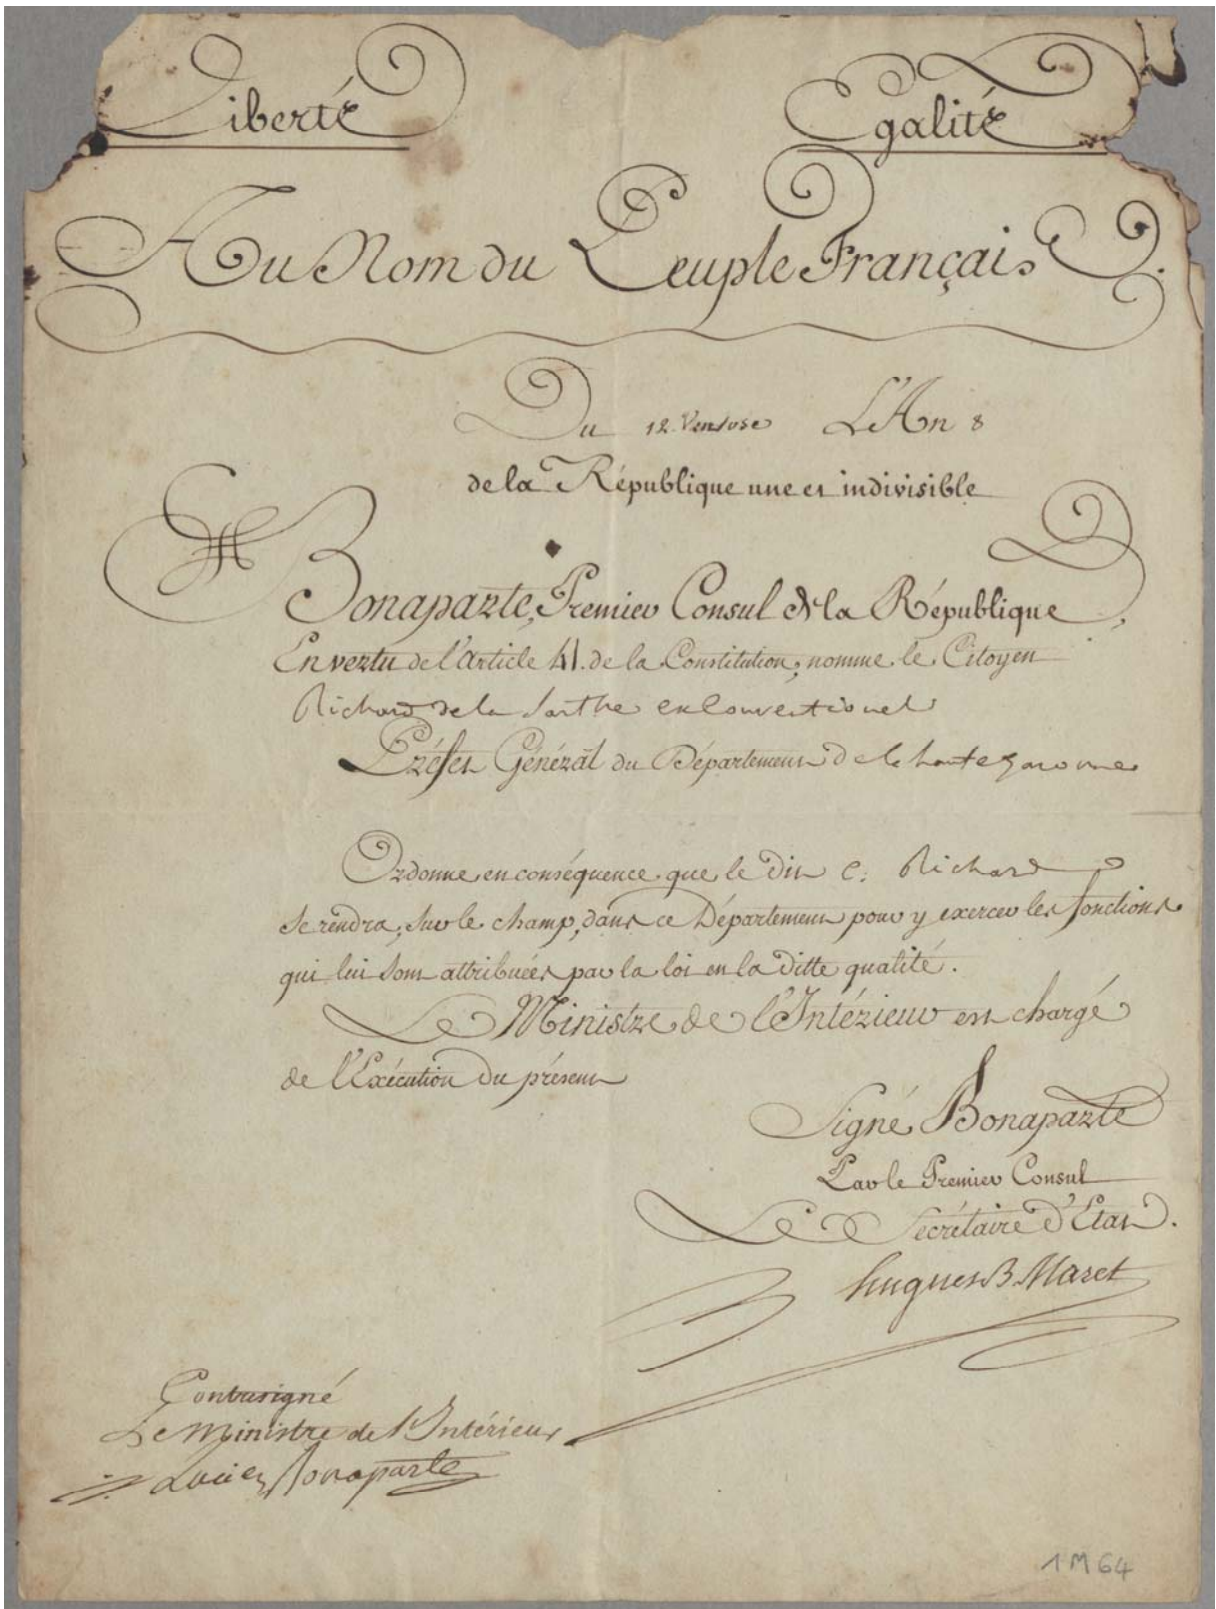 Liberté
Egalité
Au Nom du Peuple Français.
Du 12 Ventose L'An 8
de la République une et indivisible
Bonaparte, Premier Consul de la République,
En vertu de l'Article 41. de la Constitution, nomme le Citoyen
Richard de la Sarthe exconventionel
Préfet Général du Département de la haute garonne
Ordonne en conséquence que le dit C. Richard
se rendra, sur le champ, dans ce Département pour y exercer les fonctions
qui lui sont attribuées par la loi en la ditte qualité.
Le Ministre de l'Intérieur est chargé
de l'Exécution du présent
Signé, Bonaparte
Par le Premier Consul
Le Secrétaire d'Etat.
hugues B. Maret
Contresigné
Le Ministre de l'Intérieur
Lucien Bonaparte
1 M 64